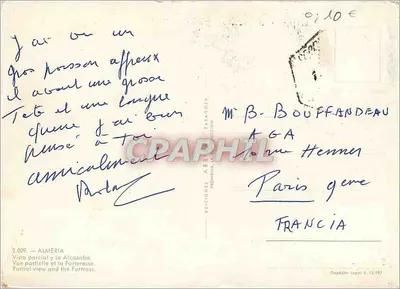 0,10 €
J'ai vu un
gros poisson affreux
il avait une grosse
Tete et une longue
queue j'ai bien
pensé à toi
amicalement
Mr B- BOUFFANDEAU
AGA
rue Henner
Paris 9eme
FRANCIA
CPAPHIL
EDICIONES
PROHIBIDA
2.009. — ALMERIA
Vista parcial y la Alcazaba.
Vue partielle et la Forteresse.
Partial view and the Fortress.
Depósito Legal B.